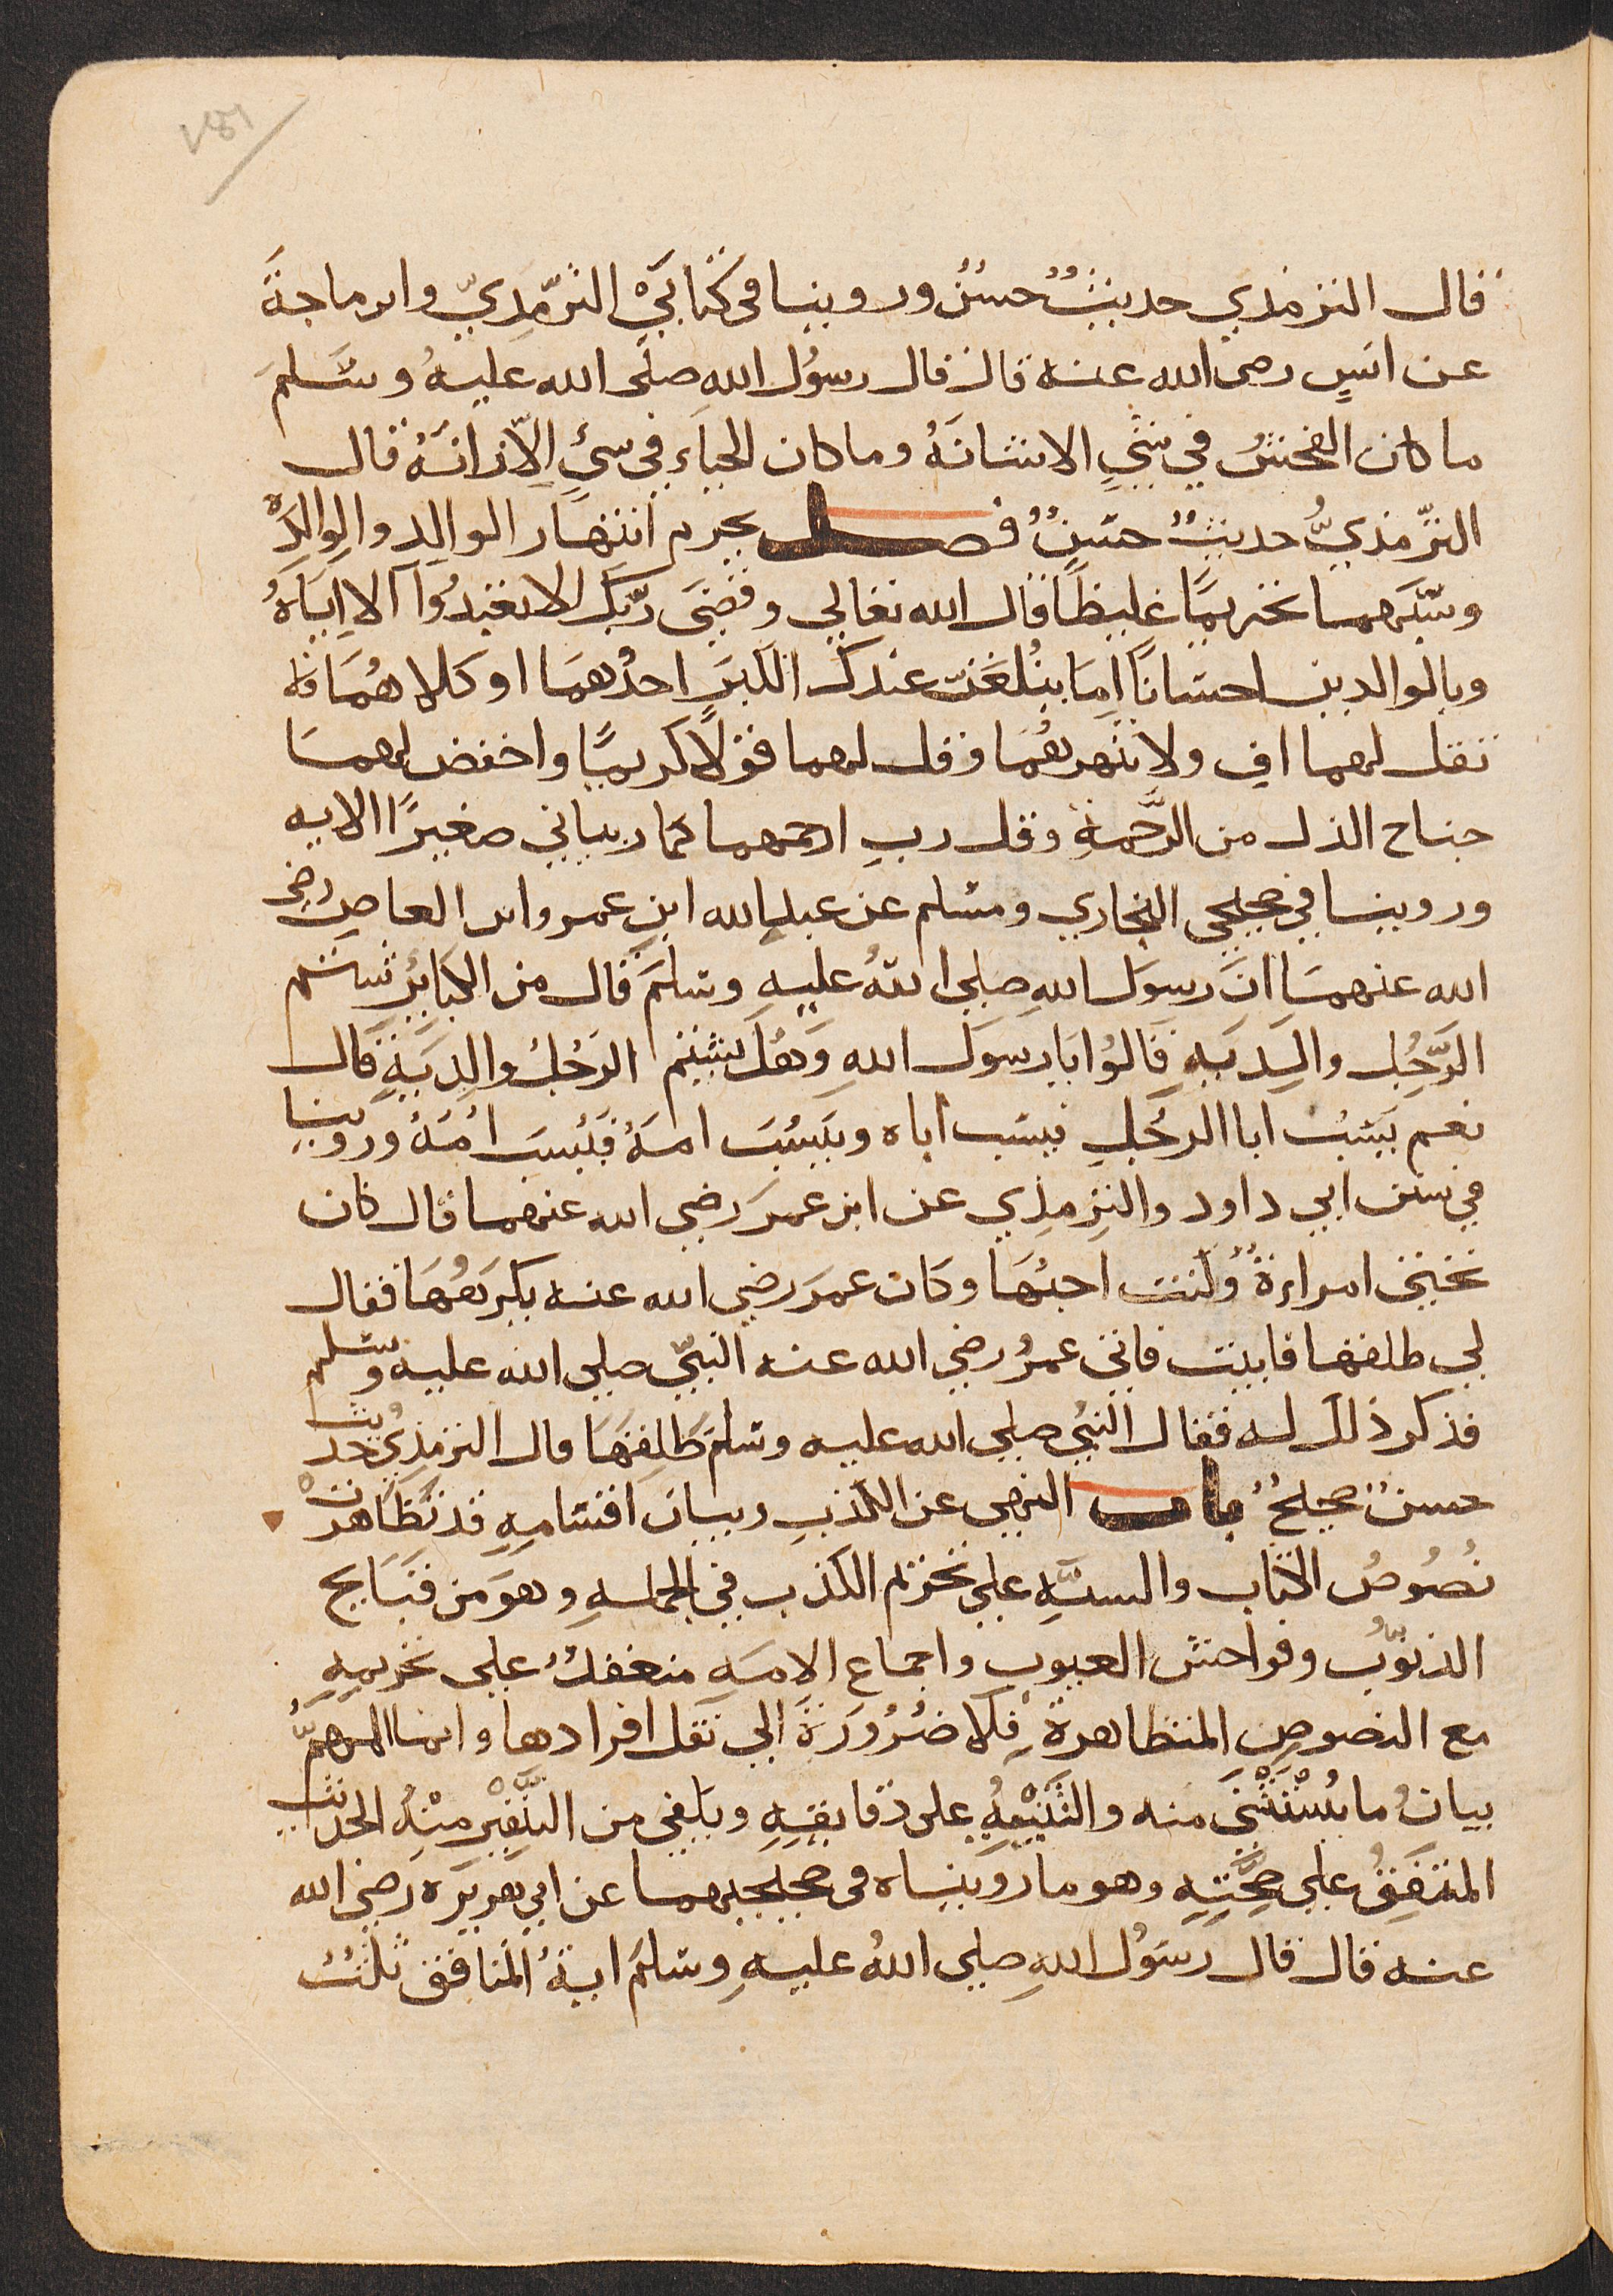 قال الترمذي حديثٌ حسنٌ وروينا في كتابَيْ الترّمِذيّ وابن ماجة
عن انسٍ رضى الله عنه قال قال رسوُل اللهِ صلى الله عليهُ وسَلمَ
ما كان الفحشُ في شيٍ الا شانَهُ وما كان الحياَء في شيءٍ الّا زانَهُ قال
الترّمذيُّ حديثٌ حسَنٌ فصل يحرم انتهَار الوالِدِ والوالِدَه
وشبَههما تحريمًا غليظًا قال الله تعالي وقضَى ربّك الا تعبدُوا الا اِيّاهُ
وبالوالدين احسَانًا اِمّا يبْلغَنّ عندك الكبَر احدُهمَا او كلاهُمَا فلا
تقل لهما افٍ ولا تنهرهُما وقل لهما قولًا كريمًا واخفض لهما
جناح الذل من الرَّحمةِ وقل ربِ ارحمهما كما ربياني صغيرًا الايه
وروينا في صحيحي البخاري ومسلم عن عبدِ الله ابن عمرو ابن العاصِ رضي
الله عنهمَا انَ رسوَل اللهِ صلي اللهُ عليهِ وسلمَ قال من الكبايرِ شتم
الرَّجُلِ والِدَيهِ قالوُا يَا رسوَل اللهِ وَهَل يَشتم الرَجُلُ والِدَيهِ قال
نعم يَسُبُ ابا الرجُلِ فيسَب اباه ويَسُبَ امهُ فيَسُبَ اُمَهُ وروينا
في سنن ابي داود والترمِذي عن ابن عمرَ رضي الله عنهما قال كان
تحتي امراءةٌ وكنت احبُهَا وكان عمرَ رضي الله عنه يكرَهُهَا فقال
لي طلقها فابيت فاتي عمرُ رضي الله عنه النبيّ صلي الله عليه وسلم
فذكر ذلك له فقال النبيُ صلي الله عليه وسلمَ طَلِقهَا قال الترمذيُ حديثٌ
حسنٌ صحيحٌ باب النهي عن الكذبِ وبيان اقسَامِهِ قد تظَاهرت
نصُوصُ الكتاب والسنَّهِ علي تحريم الكذب في الجملهِ وهوَ من قبَايح
الذنوُب وفواحش العيوب واجماع الامه منعقدٌ علي تحريمهِ
مع النصوصِ المتظاهرة فلا ضرُورَةَ الي نقل افرادها وانما المهمُّ
بيانُ ما يُسْتثْنَي منه والتنَبْيهُ علي دقايقهِ ويكفي من التنَّفِيْرِ مِنْهُ الحديث
المتفَقُ علي صِحَّتِهِ وهو ما رويناه في صحيحيهما عن ابي هريرَه رضي الله
عنه قال قال رسوُل اللهِ صلي اللهُ عليهِ وسلمَ ايةُ المنافق ثلثٌ